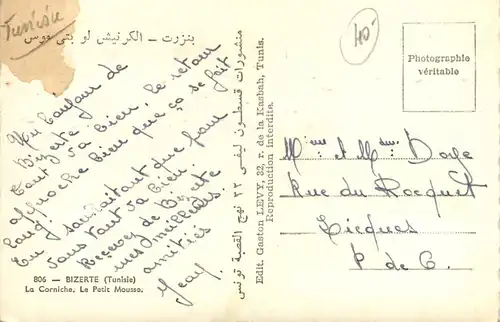 Tunisie
بنزرت - الكرنيش لو بتي موس
40
Un bonjour de
Bizerte
tout va bien, le retour
approche bien que ça se fait
long!
En souhaitant que pour
vous tout va bien.
Recevez de Bizerte
mes meilleures
amitiés
Jean
806 — BIZERTE (Tunisie)
La Corniche. Le Petit Mousse.
منشورات قسطون ليفي ٣٢ نهج القصبة تونس
Edit. Gaston LEVY, 32, r. de la Kasbah, Tunis.
Reproduction interdite.
Photographie
véritable
Mme et Mr Doye
Rue du Rocquet
Licques
P de C.